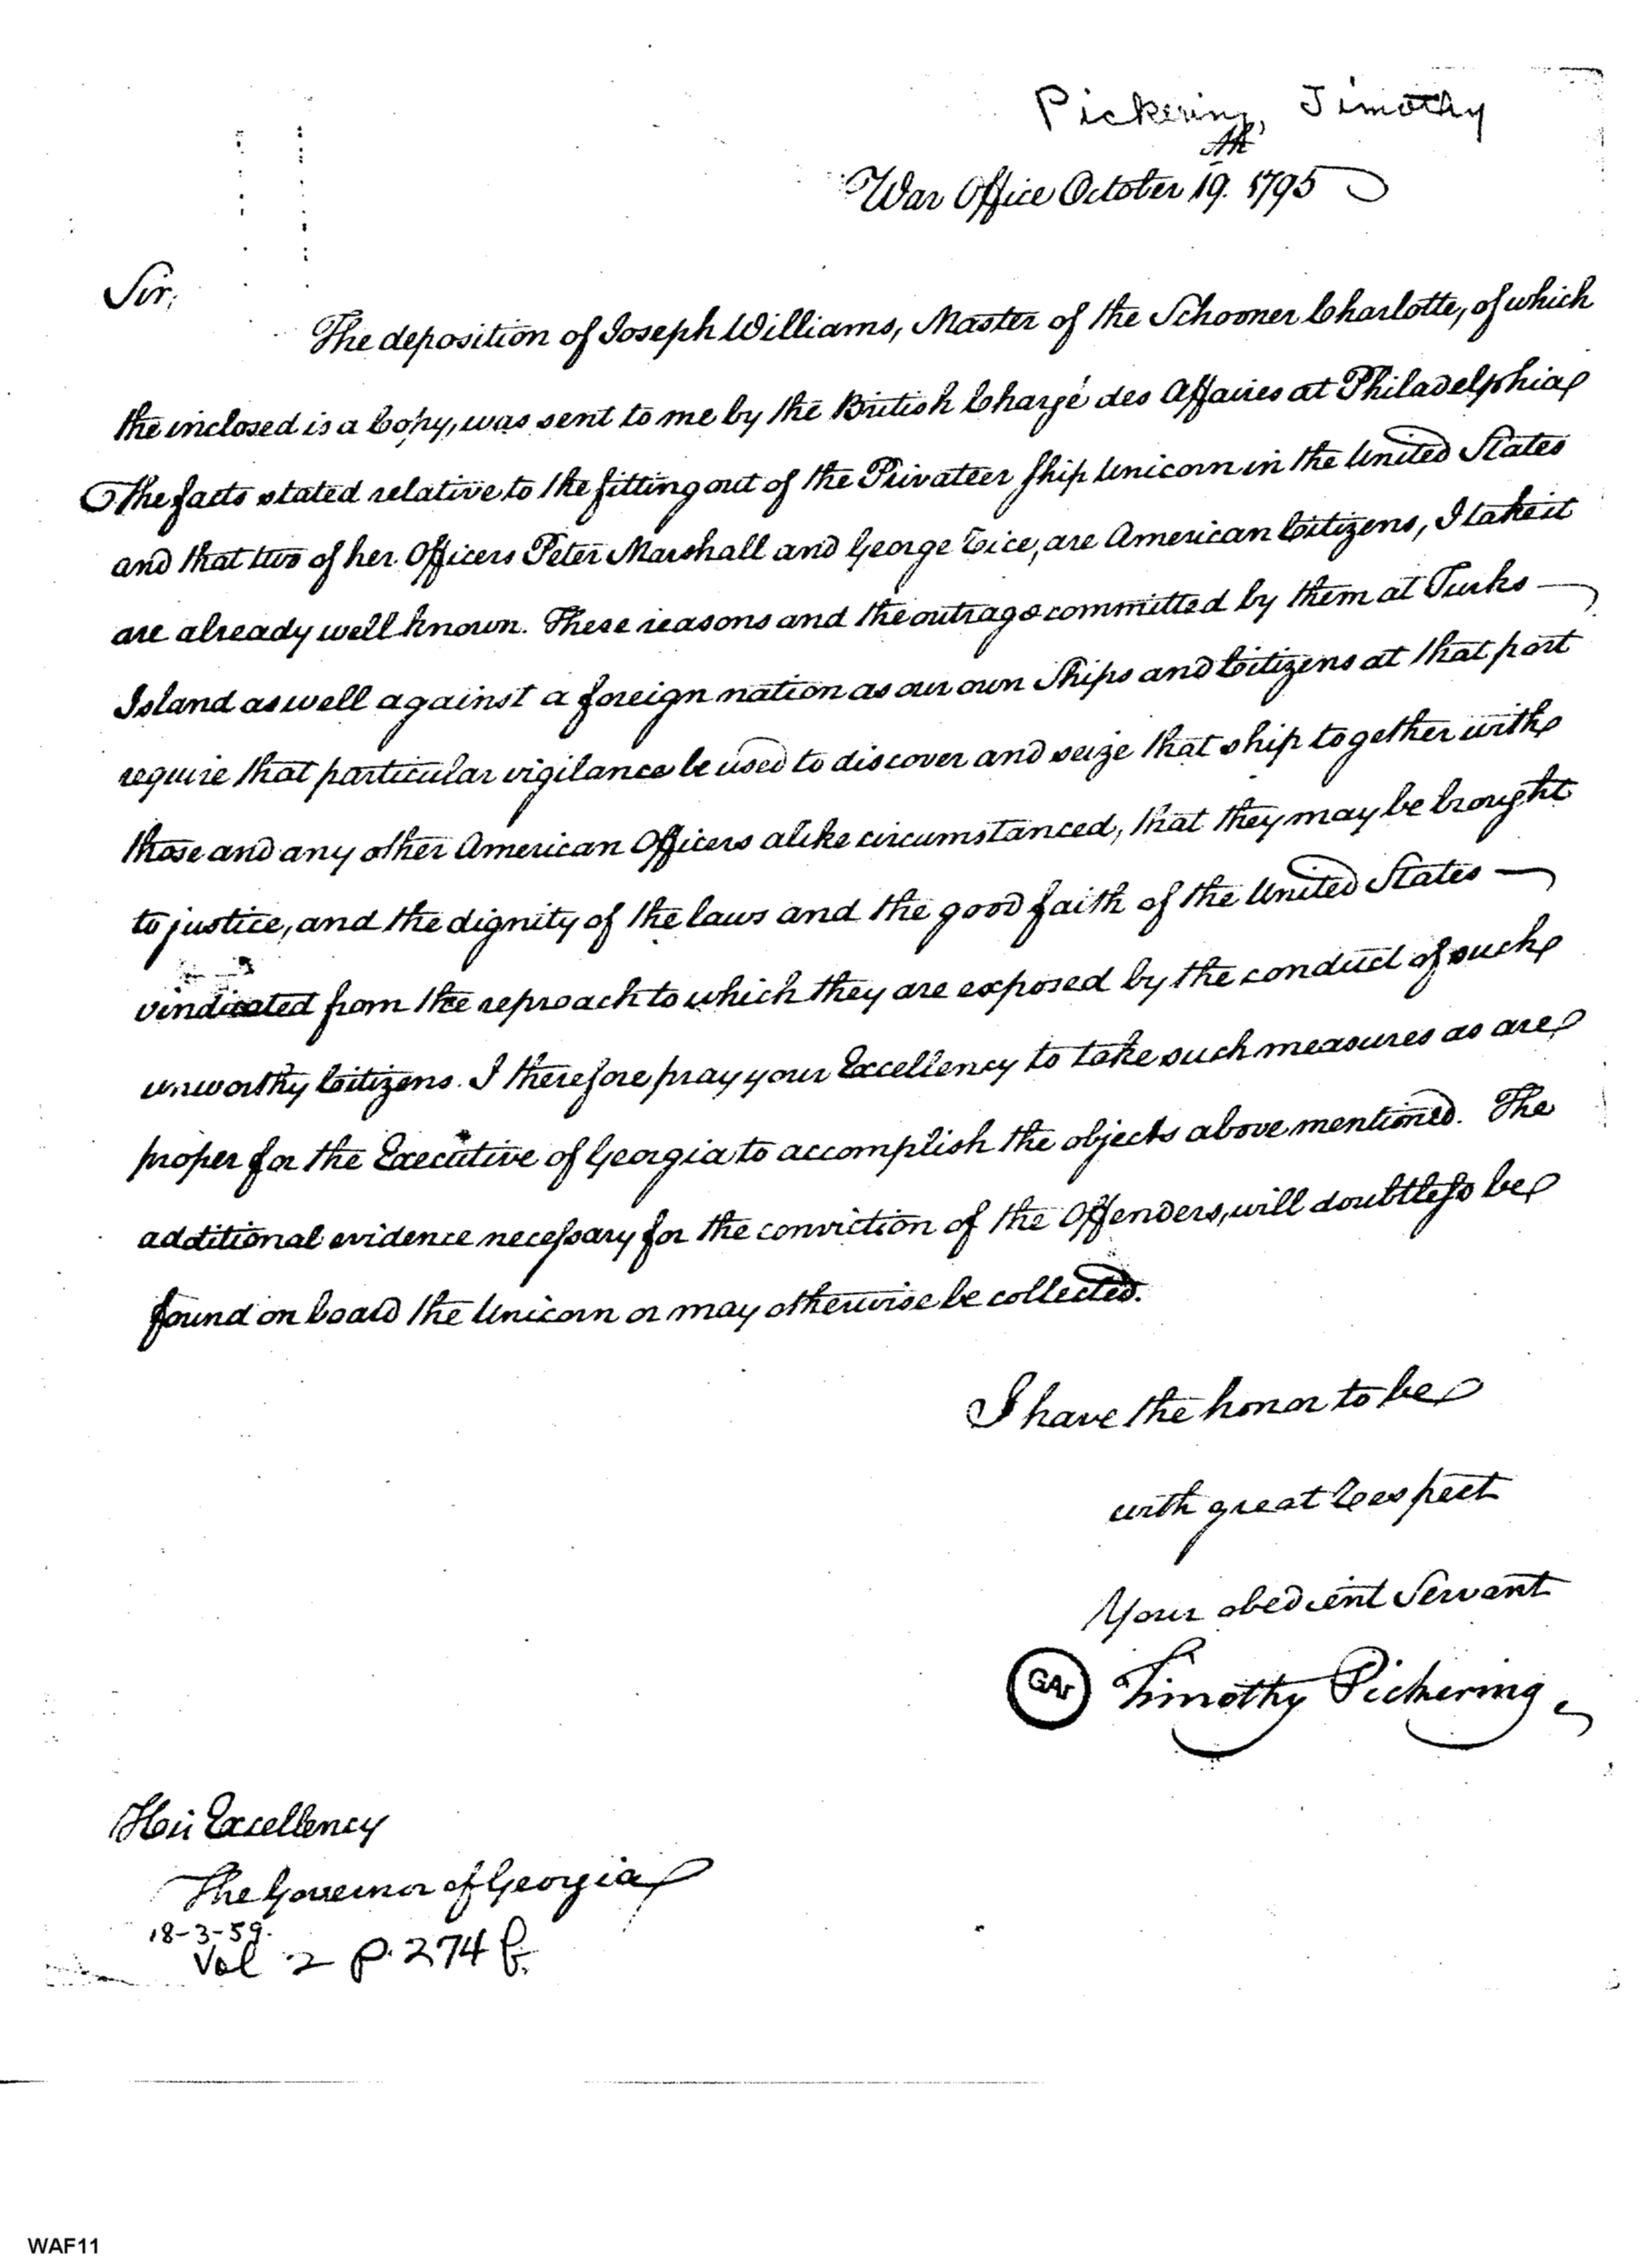 Pickering, Timothy
War Office October 19th. 1795
Sir,
The deposition of Joseph Williams, Master of the Schooner Charlotte, of which
the inclosed is a Copy, was sent to me by the British Chargé des Affaires at Philadelphia
The facts stated relative to the fitting out of the Privateer Ship Unicorn in the United States
and that two of her Officers Peter Marshall and George Tice, are American Citizens, I take it
are already well known. These reasons and the outrage committed by them at Turks —
Island as well against a foreign nation as our own Ships and Citizens at that port
require that particular vigilance be used to discover and seize that ship together with
those and any other American Officers alike circumstanced, that they may be brought
to justice, and the dignity of the laws and the good faith of the United States —
vindicated from the reproach to which they are exposed by the conduct of such
unworthy Citizens. I therefore pray your Excellency to take such measures as are
proper for the Executive of Georgia to accomplish the objects above mentioned. The
additional evidence necessary for the conviction of the Offenders, will doubtless be
found on board the Unicorn or may otherwise be collected.
I have the honor to be
with great Respect
Your obedient Servant
GAr Timothy Pickering
His Excellency
The Governor of Georgia
18-3-59.
Vol 2 p. 274
WAF11